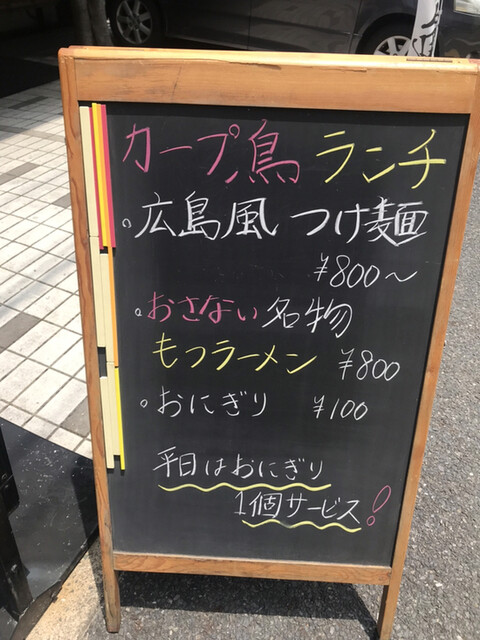 カープ鳥 ランチ
。広島風 つけ麺
¥800～
。おさない名物
もつラーメン ¥800
。おにぎり ¥100
平日はおにぎり
1個サービス！